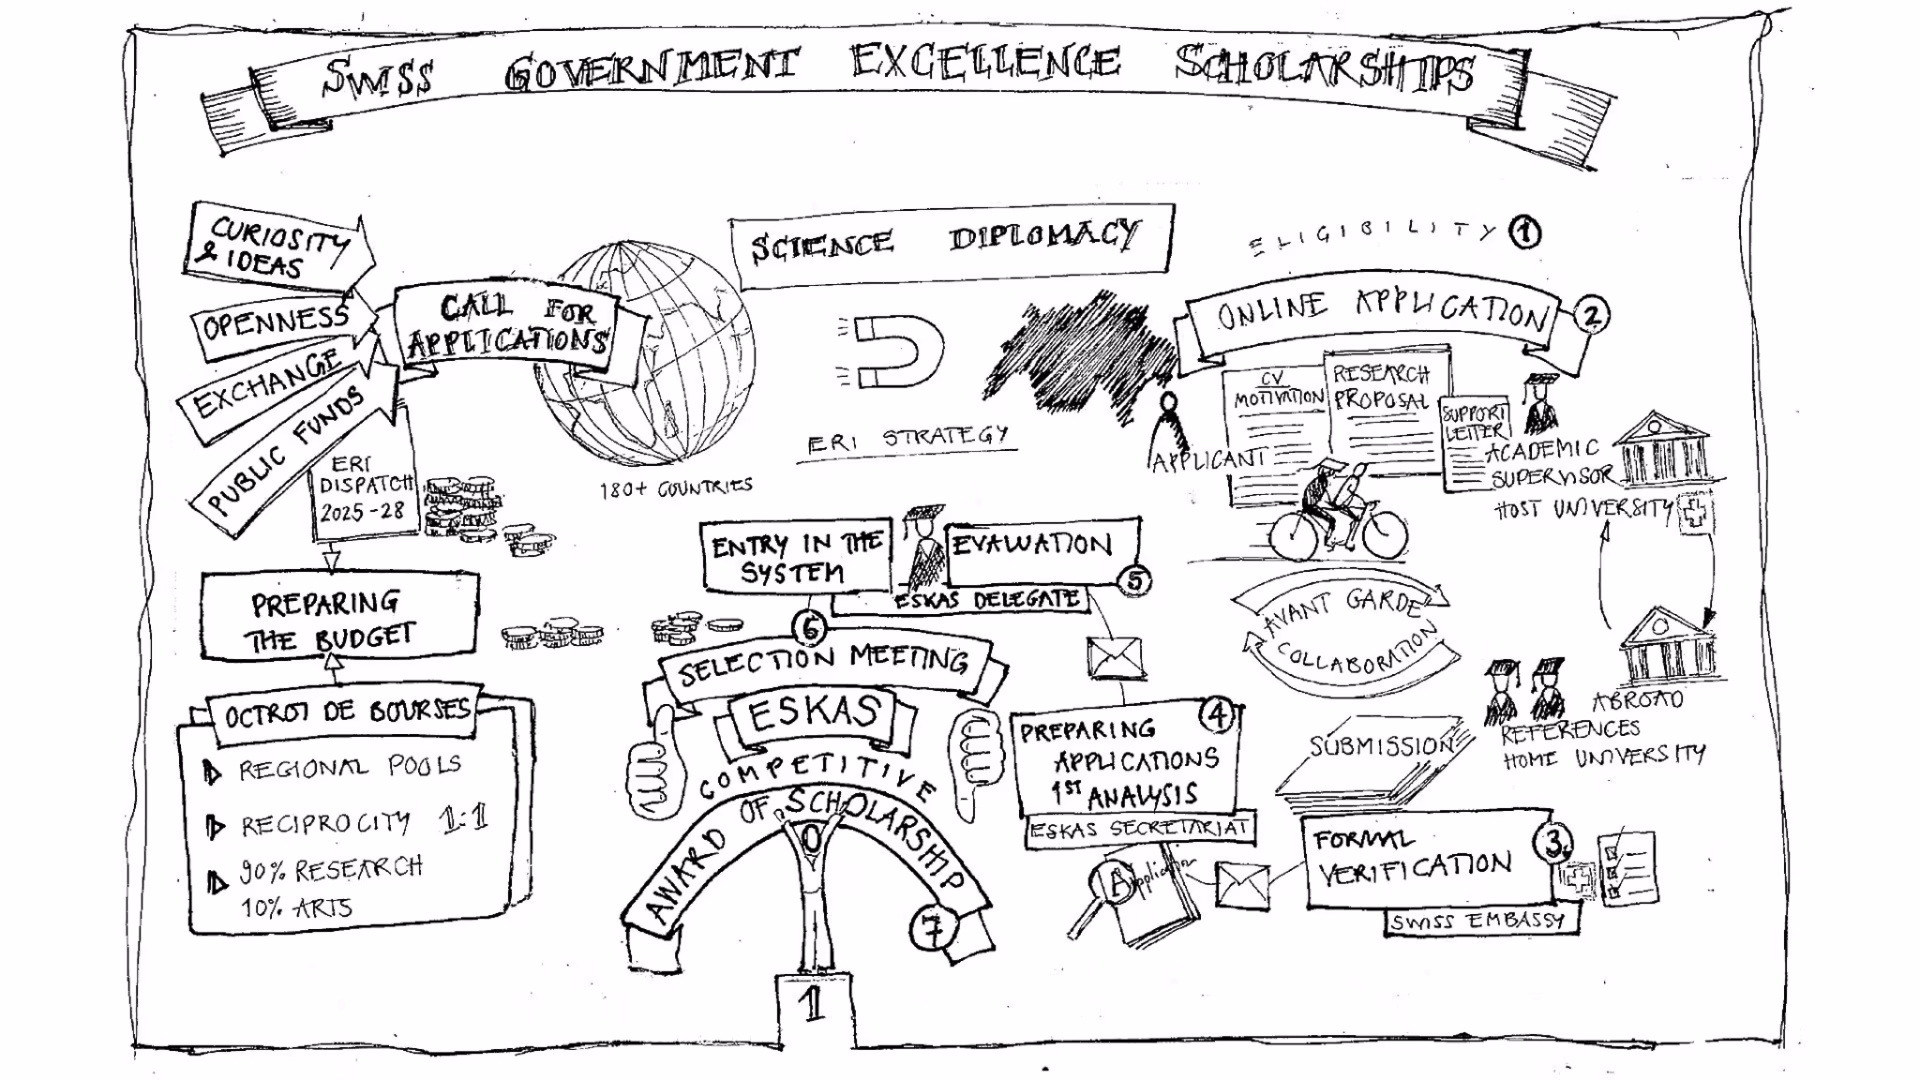 SWISS GOVERNMENT EXCELLENCE SCHOLARSHIPS
CURIOSITY
& IDEAS
OPENNESS
EXCHANGE
PUBLIC FUNDS
CALL FOR
APPLICATIONS
180+ COUNTRIES
SCIENCE DIPLOMACY
ERI STRATEGY
ERI
DISPATCH
2025-28
PREPARING
THE BUDGET
OCTROI DE BOURSES
REGIONAL POOLS
RECIPROCITY 1:1
90% RESEARCH
10% ARTS
ELIGIBILITY 1
ONLINE APPLICATION 2
CV
MOTIVATION
RESEARCH
PROPOSAL
SUPPORT
LETTER
APPLICANT
ACADEMIC
SUPERVISOR
HOST UNIVERSITY
AVANT GARDE
COLLABORATION
ABROAD
REFERENCES
HOME UNIVERSITY
SUBMISSION
FORMAL
VERIFICATION
3
SWISS EMBASSY
PREPARING
APPLICATIONS
1ST ANALYSIS
4
ESKAS SECRETARIAT
Application
ENTRY IN THE
SYSTEM
EVALUATION
5
ESKAS DELEGATE
6
SELECTION MEETING
ESKAS
COMPETITIVE
AWARD OF SCHOLARSHIP
7
1